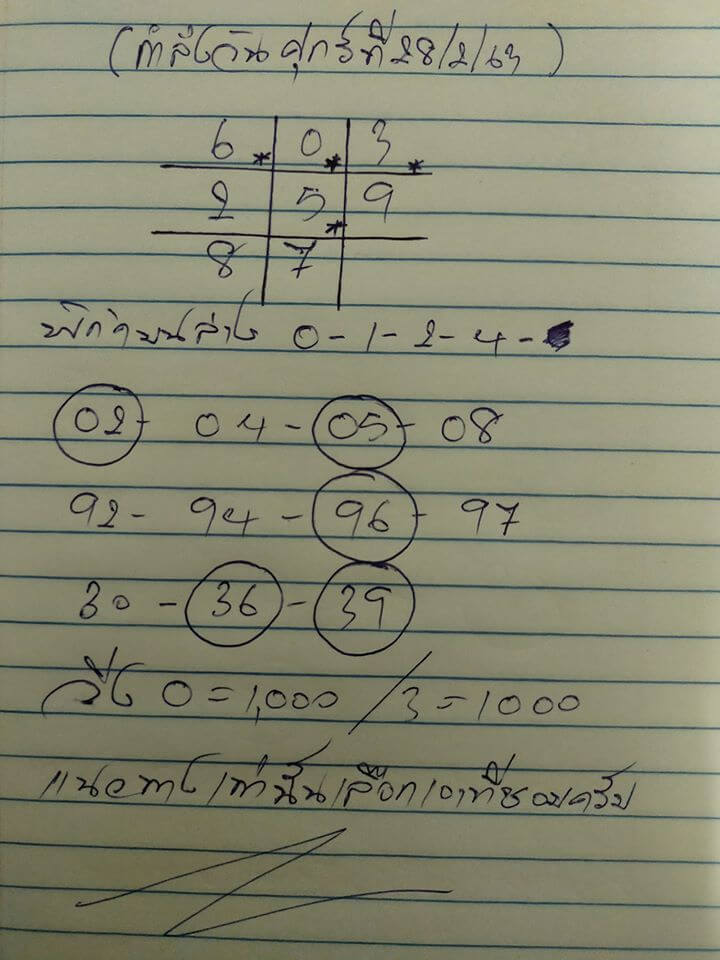 วันศุกร์ที่ 28/2/63 )
6 * 0 * 3 *
2 5 * 9
8 7
0 - 1 - 2 - 4 -
02 - 04 - 05 - 08
92 - 94 - 96 - 97
30 - 36 - 39
วิ่ง 0 = 1,000 / 3 = 1000
แนวทางเท่านั้นเลือกเอาที่ชอบครับ